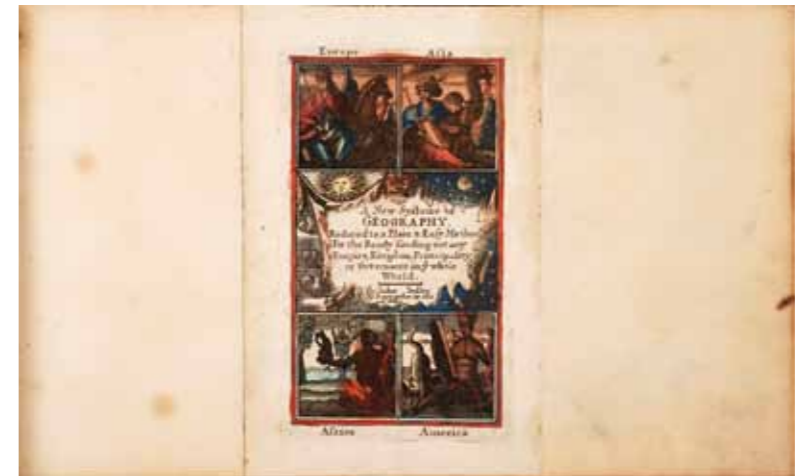 Europe Asia
A New Systeme of
GEOGRAPHY.
Reduced to a Plain & Easy Method
For the Ready finding out any
Empire, Kingdom, Principality,
or Government in ye whole
World.
By John Seller
Africa America